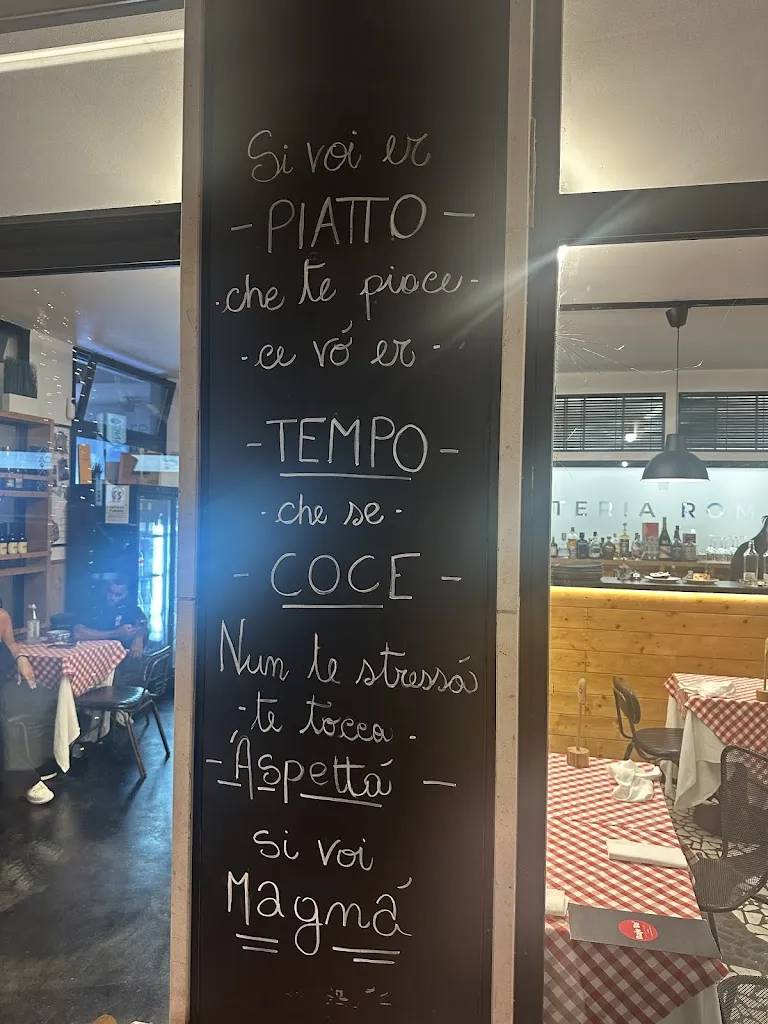 Si voi er
- PIATTO -
- che te piace -
- ce vó er -
- TEMPO -
- che se -
- COCE -
Nun te stressá
- te tocca -
- Aspettá -
si voi
Magná
TERIA ROM